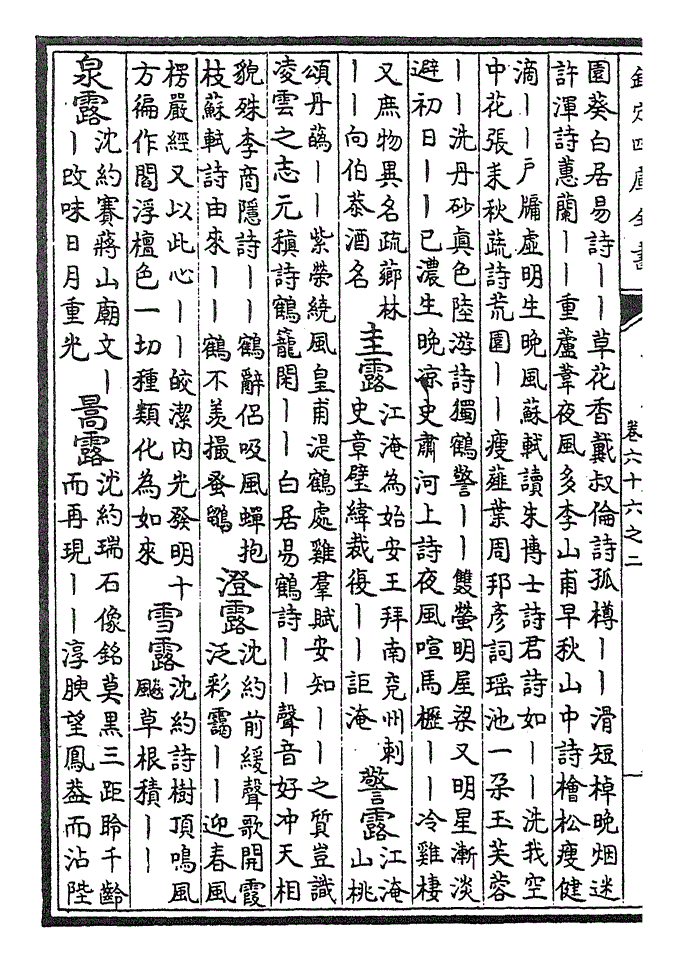 欽定四庫全書
卷六十六之二
園葵白居易詩――草花香戴叔倫詩孤樽――滑短棹晚烟迷
許渾詩蕙蘭――重蘆葦夜風多李山甫早秋山中詩檜松瘦健
滴――戶牖虛明生晚風蘇軾讀朱博士詩君詩如――洗我空
中花張耒秋蔬詩荒園――瘦薤葉周邦彥詞瑶池一朶玉芙蓉
――洗丹砂真色陸游詩獨鶴警――雙螢明屋梁又明星漸淡
避初日――已濃生晚凉史肅河上詩夜風喧馬櫪――冷雞棲
又庶物異名疏薌林
――向伯恭酒名
圭露
江淹為始安王拜南兗州刺
史章璧緯裁復――詎淹
警露
江淹
山桃
頌丹蘤――紫榮繞風皇甫湜鶴處雞羣賦安知――之質豈識
凌雲之志元稹詩鶴籠閑――白居易鶴詩――聲音好冲天相
貌殊李商隱詩――鶴辭侶吸風蟬抱
枝蘇軾詩由來――鶴不羨撮蚤鶹
澄露
沈約前緩聲歌開霞
泛彩靄――迎春風
楞嚴經又以此心――皎潔内光發明十
方徧作閻浮檀色一切種類化為如來
雪露
沈約詩樹頂鳴風
飈草根積――
泉露
沈約賽蔣山廟文―
―改味日月重光
暠露
沈約瑞石像銘莫黑三距聆千齡
而再現――淳腴望鳳葢而沾陛